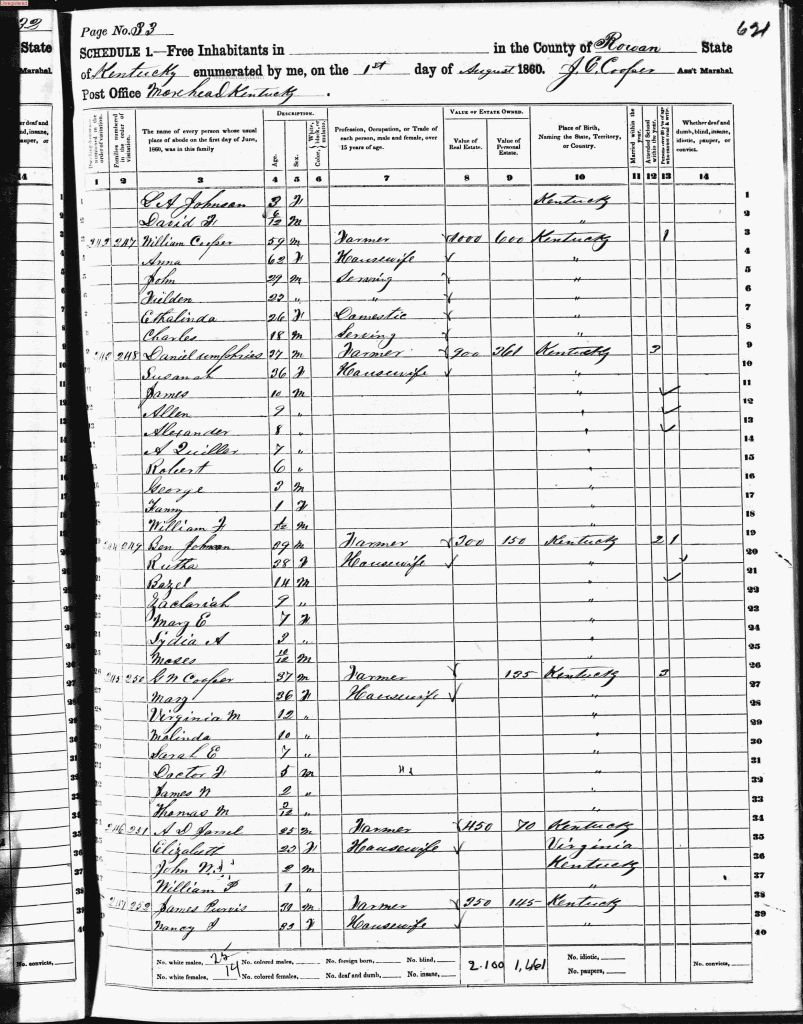 Page No. 33
621
SCHEDULE 1.—Free Inhabitants in in the County of Rowan State
of Kentucky enumerated by me, on the 1st day of August 1860. J. C. Cooper Ass't Marshal.
Post Office Morehead Kentucky.
State
Marshal.
The name of every person whose usual place of abode on the first day of June, 1860, was in this family
DESCRIPTION.
Age.
Sex.
Profession, Occupation, or Trade of each person, male and female, over 15 years of age.
VALUE OF ESTATE OWNED.
Value of Real Estate.
Value of Personal Estate.
Place of Birth, Naming the State, Territory, or Country.
Married within the year.
Attended School within the year.
Whether deaf and dumb, blind, insane, idiotic, pauper, or convict.
1 2 3 4 5 6 7 8 9 10 11 12 13 14
L A Johnson 3 F Kentucky 1
David F 6/12 M " 2
247 William Cooper 59 M Farmer 1000 600 Kentucky 1 3
Anna 62 F Housewife " 4
John 29 M Serving " 5
Fielden 23 " " " 6
Ethalinda 26 F Domestic " 7
Charles 18 M Serving " 8
248 Daniel umphries 37 M Farmer 200 361 Kentucky 3 9
Susanah 36 F Housewife " 10
James 10 M " 11
Allen 9 " " 12
Alexander 8 " " 13
A Quiller 7 " " 14
Robert 6 " " 15
George 3 M " 16
Fanny 1 F " 17
William F M " 18
249 Ben Johnson 39 M Farmer 200 150 Kentucky 2 1 19
Rutha 28 F Housewife " 20
Bazel 14 M " 21
Zachariah 9 " " 22
Mary E 7 F " 23
Lydia A 3 " " 24
Moses 10/12 M " 25
245 250 G W Cooper 37 M Farmer 125 Kentucky 3 26
Mary 36 F Housewife " 27
Virginia M 12 " " 28
Malinda 10 " " 29
Sarah E 7 " " 30
Doctor F 5 M " 31
James N 2 " " 32
Thomas M 2/12 " " 33
246 251 A D 25 M Farmer 450 70 Kentucky 34
Elizabeth 23 F Housewife Virginia 35
John N 2 M Kentucky 36
William P 1 " " 37
247 252 James Purvis 30 M Farmer 250 145 Kentucky 38
Nancy 33 F Housewife " 39
40
No. white males, No. colored males, No. foreign born, No. blind, 2.100 1,461 No. idiotic, No. convicts,
No. white females, 14 No. colored females, No. deaf and dumb, No. insane, No. paupers,
No. convicts,